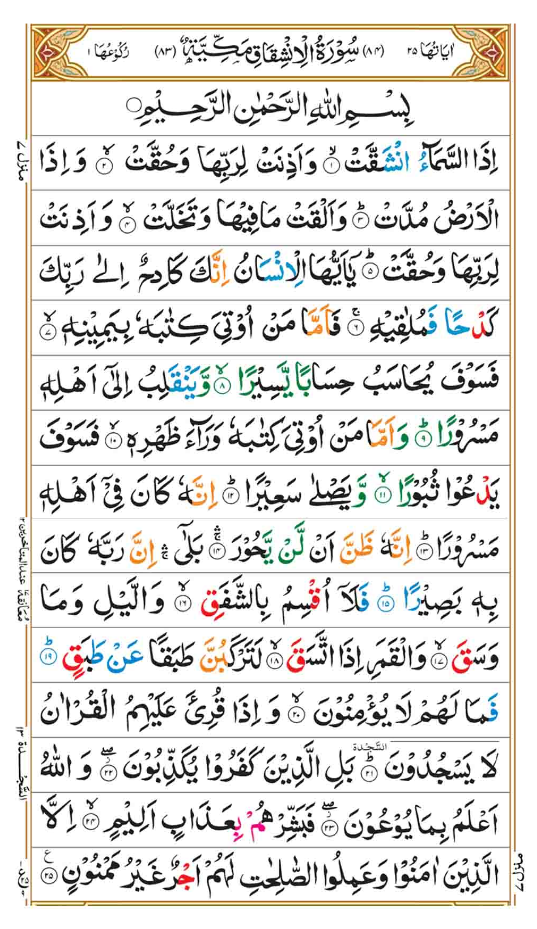 اٰیَاتُهَا ۲۵ (۸۴) سُوْرَةُ الْاِنْشِقَاقِ مَكِّیَّةٌ (۸۳) رُكُوْعُهَا ۱
بِسْمِ اللّٰهِ الرَّحْمٰنِ الرَّحِیْمِ
اِذَا السَّمَآءُ انْشَقَّتْ ۙ۱ وَاَذِنَتْ لِرَبِّهَا وَحُقَّتْ ۙ۲ وَاِذَا
الْاَرْضُ مُدَّتْ ؕ۳ وَاَلْقَتْ مَا فِیْهَا وَتَخَلَّتْ ۙ۴ وَاَذِنَتْ
لِرَبِّهَا وَحُقَّتْ ؕ۵ یٰۤاَیُّهَا الْاِنْسَانُ اِنَّكَ كَادِحٌ اِلٰی رَبِّكَ
كَدْحًا فَمُلٰقِیْهِ ۚ۶ فَاَمَّا مَنْ اُوْتِیَ كِتٰبَهٗ بِیَمِیْنِهٖ ۙ۷
فَسَوْفَ یُحَاسَبُ حِسَابًا یَّسِیْرًا ۙ۸ وَّیَنْقَلِبُ اِلٰۤی اَهْلِهٖ
مَسْرُوْرًا ؕ۹ وَاَمَّا مَنْ اُوْتِیَ كِتٰبَهٗ وَرَآءَ ظَهْرِهٖ ۙ۱۰ فَسَوْفَ
یَدْعُوْا ثُبُوْرًا ۙ۱۱ وَّیَصْلٰی سَعِیْرًا ؕ۱۲ اِنَّهٗ كَانَ فِیْۤ اَهْلِهٖ
مَسْرُوْرًا ؕ۱۳ اِنَّهٗ ظَنَّ اَنْ لَّنْ یَّحُوْرَ ۚۛ۱۴ بَلٰۤی ۚۛ اِنَّ رَبَّهٗ كَانَ
بِهٖ بَصِیْرًا ؕ۱۵ فَلَاۤ اُقْسِمُ بِالشَّفَقِ ۙ۱۶ وَالَّیْلِ وَمَا
وَسَقَ ۙ۱۷ وَالْقَمَرِ اِذَا اتَّسَقَ ۙ۱۸ لَتَرْكَبُنَّ طَبَقًا عَنْ طَبَقٍ ؕ۱۹
فَمَا لَهُمْ لَا یُؤْمِنُوْنَ ۙ۲۰ وَاِذَا قُرِئَ عَلَیْهِمُ الْقُرْاٰنُ
لَا یَسْجُدُوْنَ السَّجْدَة ؕ۲۱ بَلِ الَّذِیْنَ كَفَرُوْا یُكَذِّبُوْنَ ۖ۲۲ وَاللّٰهُ
اَعْلَمُ بِمَا یُوْعُوْنَ ۖ۲۳ فَبَشِّرْهُمْ بِعَذَابٍ اَلِیْمٍ ۙ۲۴ اِلَّا
الَّذِیْنَ اٰمَنُوْا وَعَمِلُوا الصّٰلِحٰتِ لَهُمْ اَجْرٌ غَیْرُ مَمْنُوْنٍ ۲۵ ع
منزل ۷
معانقة ۱۶ عند المتأخرین ۱۲
السجدة ۱۳
منزل ۷